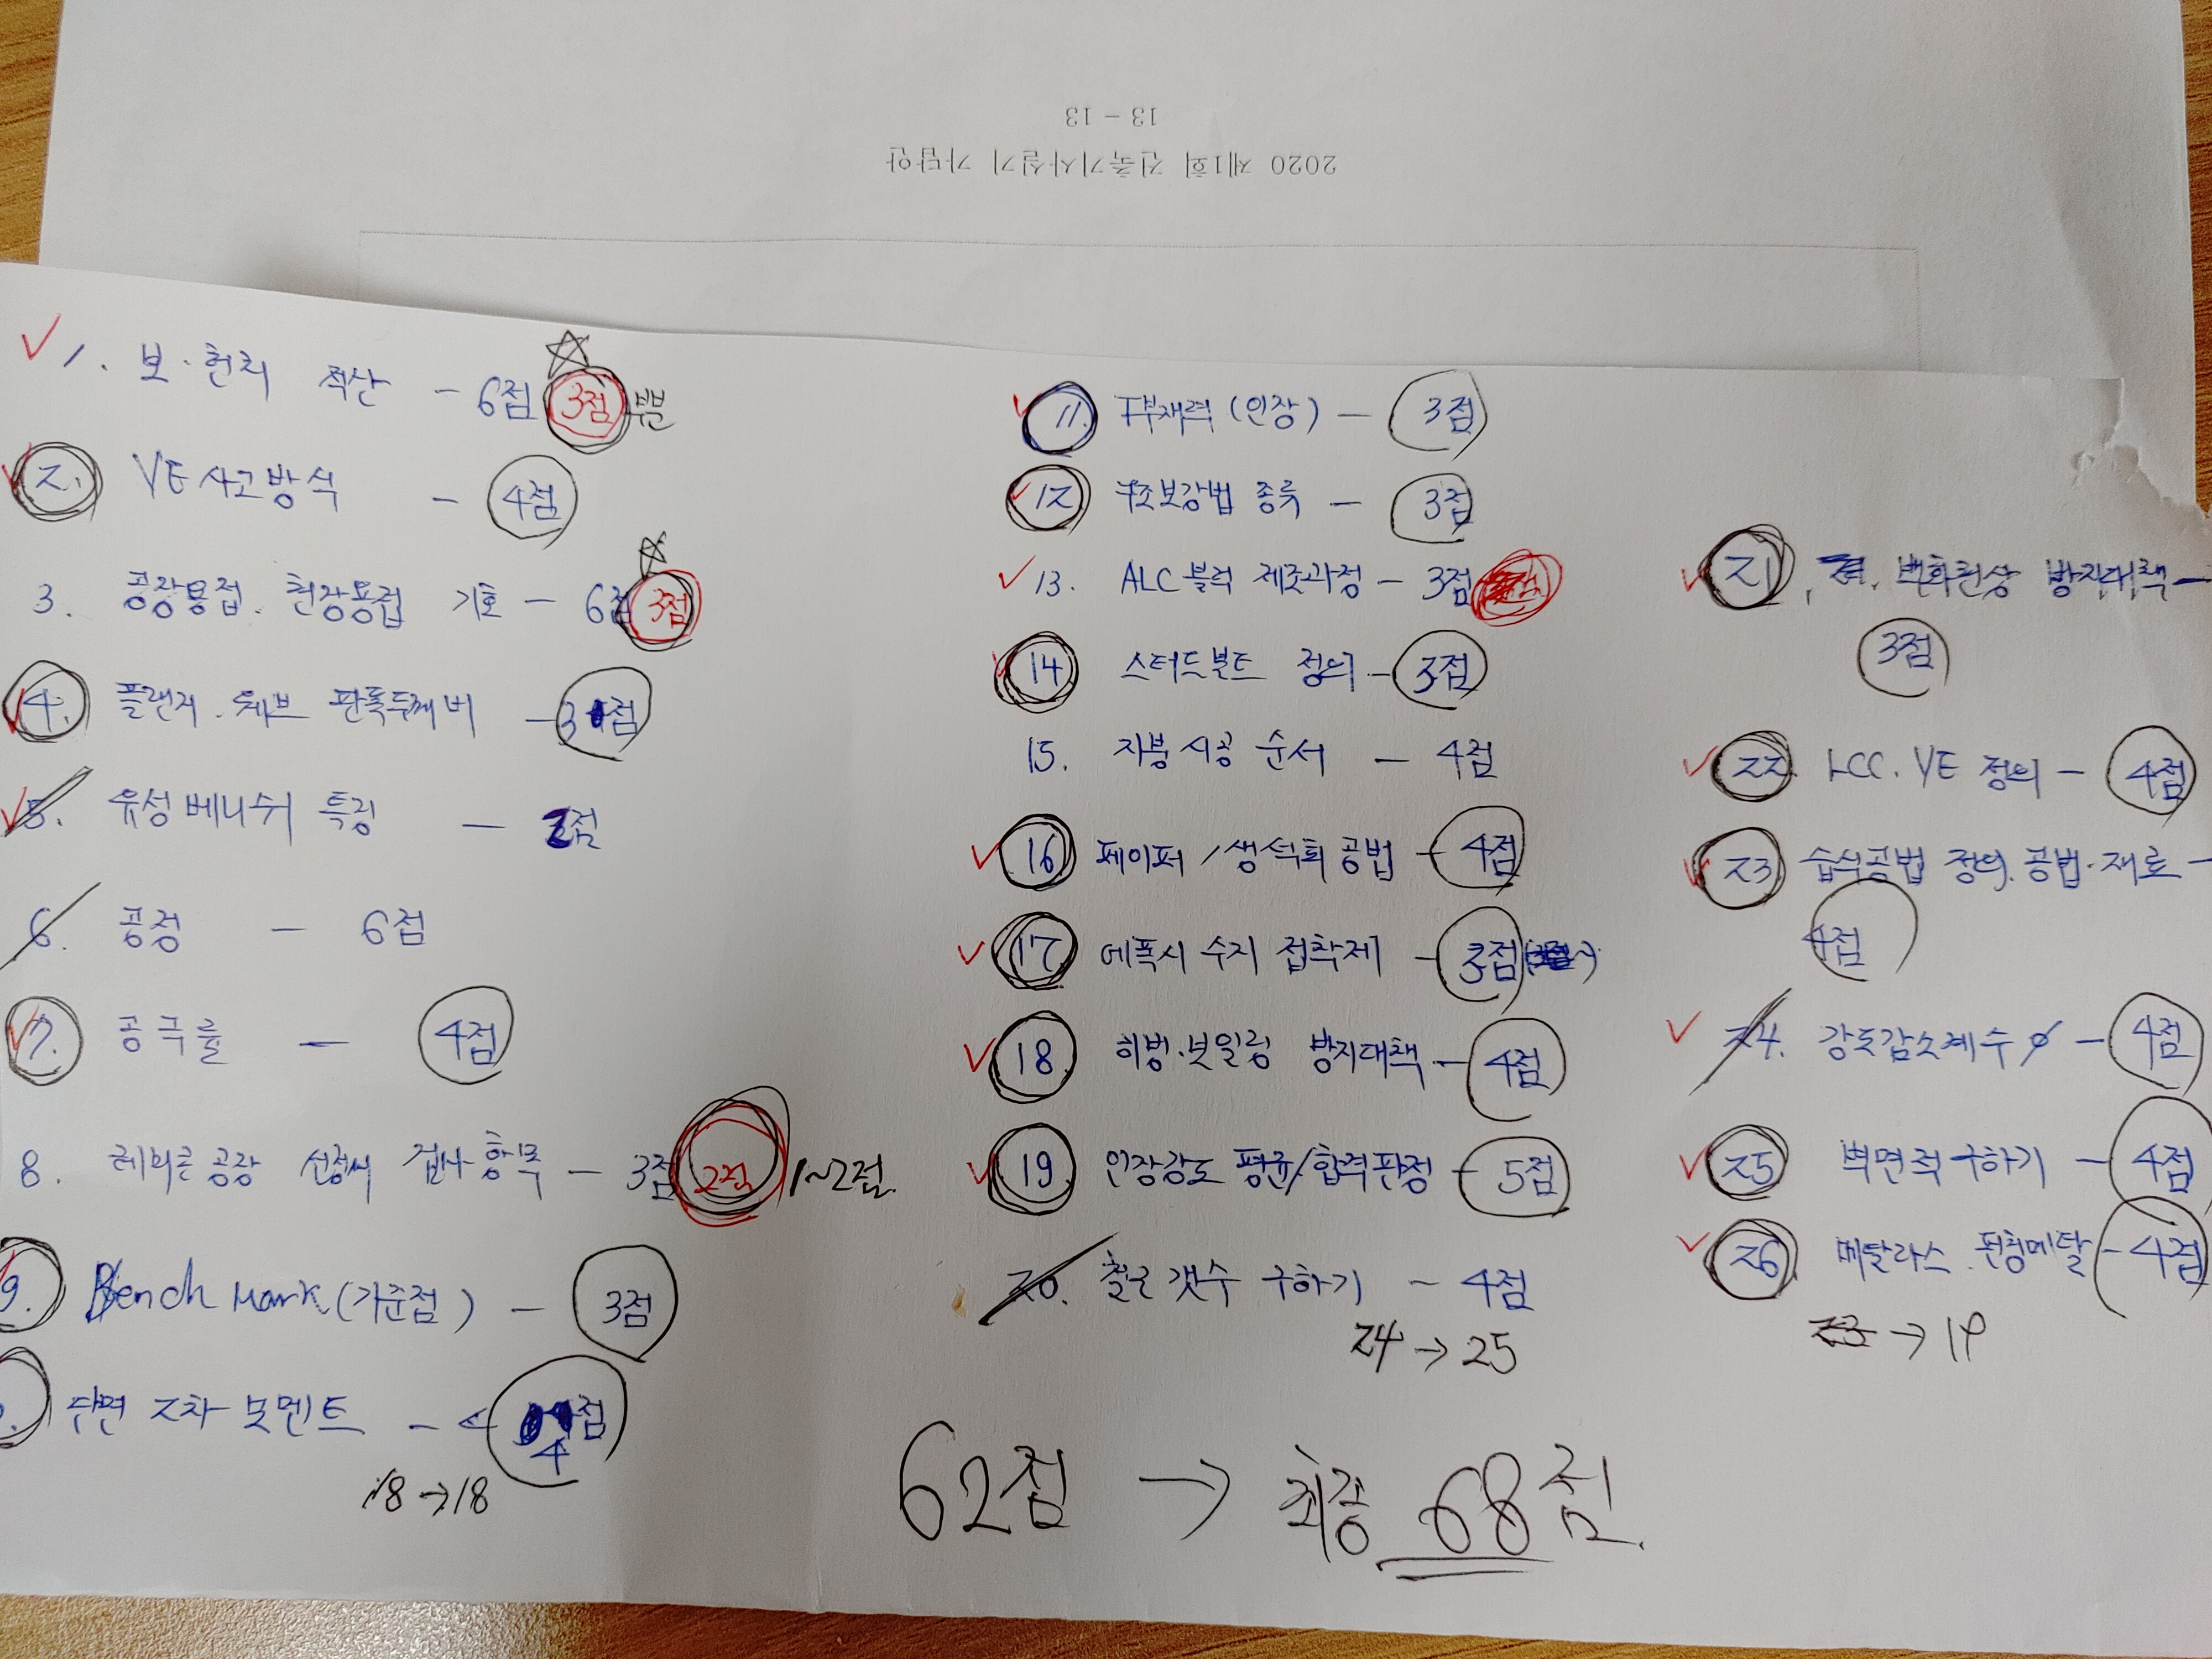 13 - 13
2020 제1회 건축기사실기 가답안
1. 보·헌치 적산 - 6점 3점 부분
2. VE 사고방식 - 4점
3. 공장용접. 현장용접 기호 - 6점 3점
4. 플랜지. 웨브 판폭두께비 - 3점
5. 유성 베니쉬 특징 - 2점
6. 공정 - 6점
7. 공극률 - 4점
8. 레미콘 공장 선정시 검사항목 - 3점 2점 1~2점.
9. Bench Mark (기준점) - 3점
단면 2차 모멘트 - 4점
18 → 18
11. T부재력 (인장) - 3점
12 구조보강법 종류 - 3점
13. ALC 블럭 제조과정 - 3점
14 스터드볼트 정의 - 3점
15. 지붕 시공 순서 - 4점
16 페이퍼 / 생석회 공법 - 4점
17 에폭시 수지 접착제 - 3점
18 히빙·보일링 방지대책 - 4점
19 인장강도 평균/합격판정 - 5점
20. 철근 갯수 구하기 - 4점
24 → 25
21. 백화현상 방지대책 -
3점
22. LCC. VE 정의 - 4점
23 습식공법 정의. 공법·재료 -
4점
24. 강도감소계수 ∅ - 4점
25 벽면적 구하기 - 4점
26 메탈라스. 펀칭메탈 - 4점
23 → 19
62점 → 최종 68점.